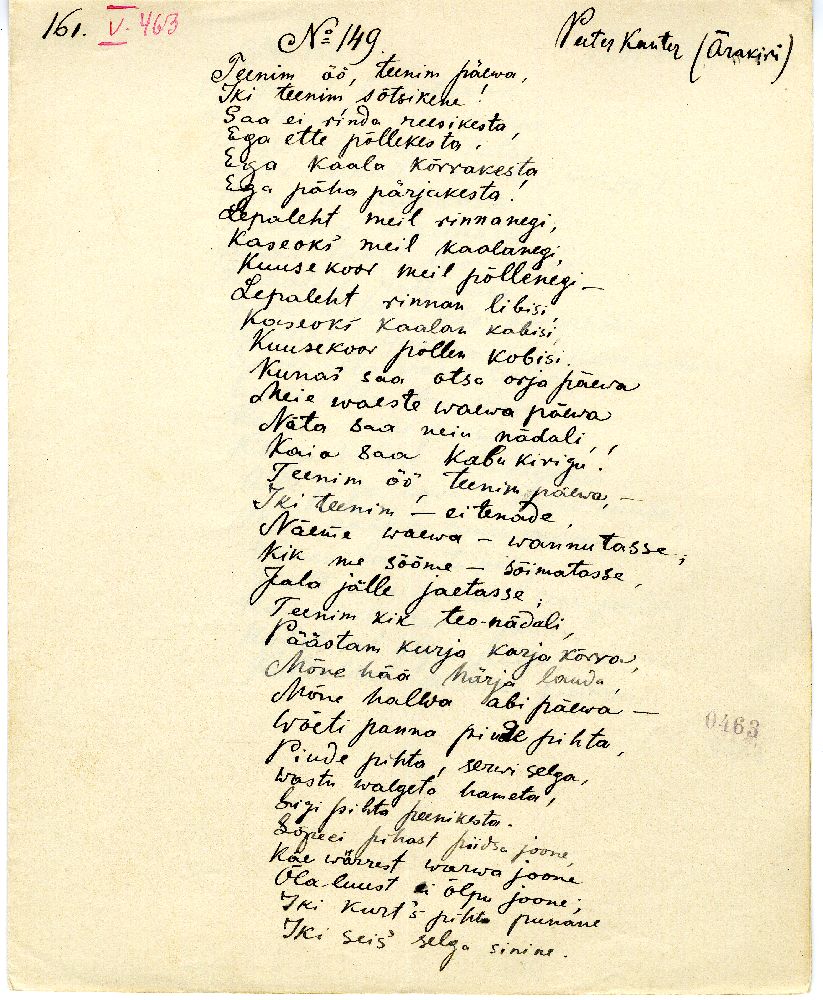 161. V. 463
Peeter Kanter (Ärakiri)
No 149.
Teenim öö, teenim päewa,
Iki teenim sõtsikene!
Saa ei rinda reesikesta,
Ega ette põllekesta,
Ega kaala kõrrakesta
Ega päha pärjakesta!
Lepaleht meil rinnanegi,
Kaseoks meil kaalanegi,
Kuusekoor meil põllenegi –
Lepaleht rinnan libisi,
Kaseoks kaalan kabisi,
Kuusekoor põllen kobisi.
Kunas saa otsa orja päewa
Meie waeste waewa päewa
Näta saa neiu nädali,!
Kaia saa kabu kirigu!
Teenim öö, teenim päewa, –
Iki teenim – ei tenäde,
Näeme waewa – wannutasse;
Kik me sööme – sõimatasse,
Jala jälle jaetasse;
Teenim kik teo-nädali,
Päästam kurja karja kõrra,
Mõne hää härja lauda,
Mõne halwa abi päewa –
Wõeti panna piude pihta,
Piude pihta, serwi selga,
wastu walgeta hameta,
Ligi pihta peenikesta.
Lõpe ei pihast piidsa joone,
Käe wärrest warwa joone
Õla-luust ei õlpu joone;
Iki kurt's pihta punane
Iki seis' selga sinine.
0463